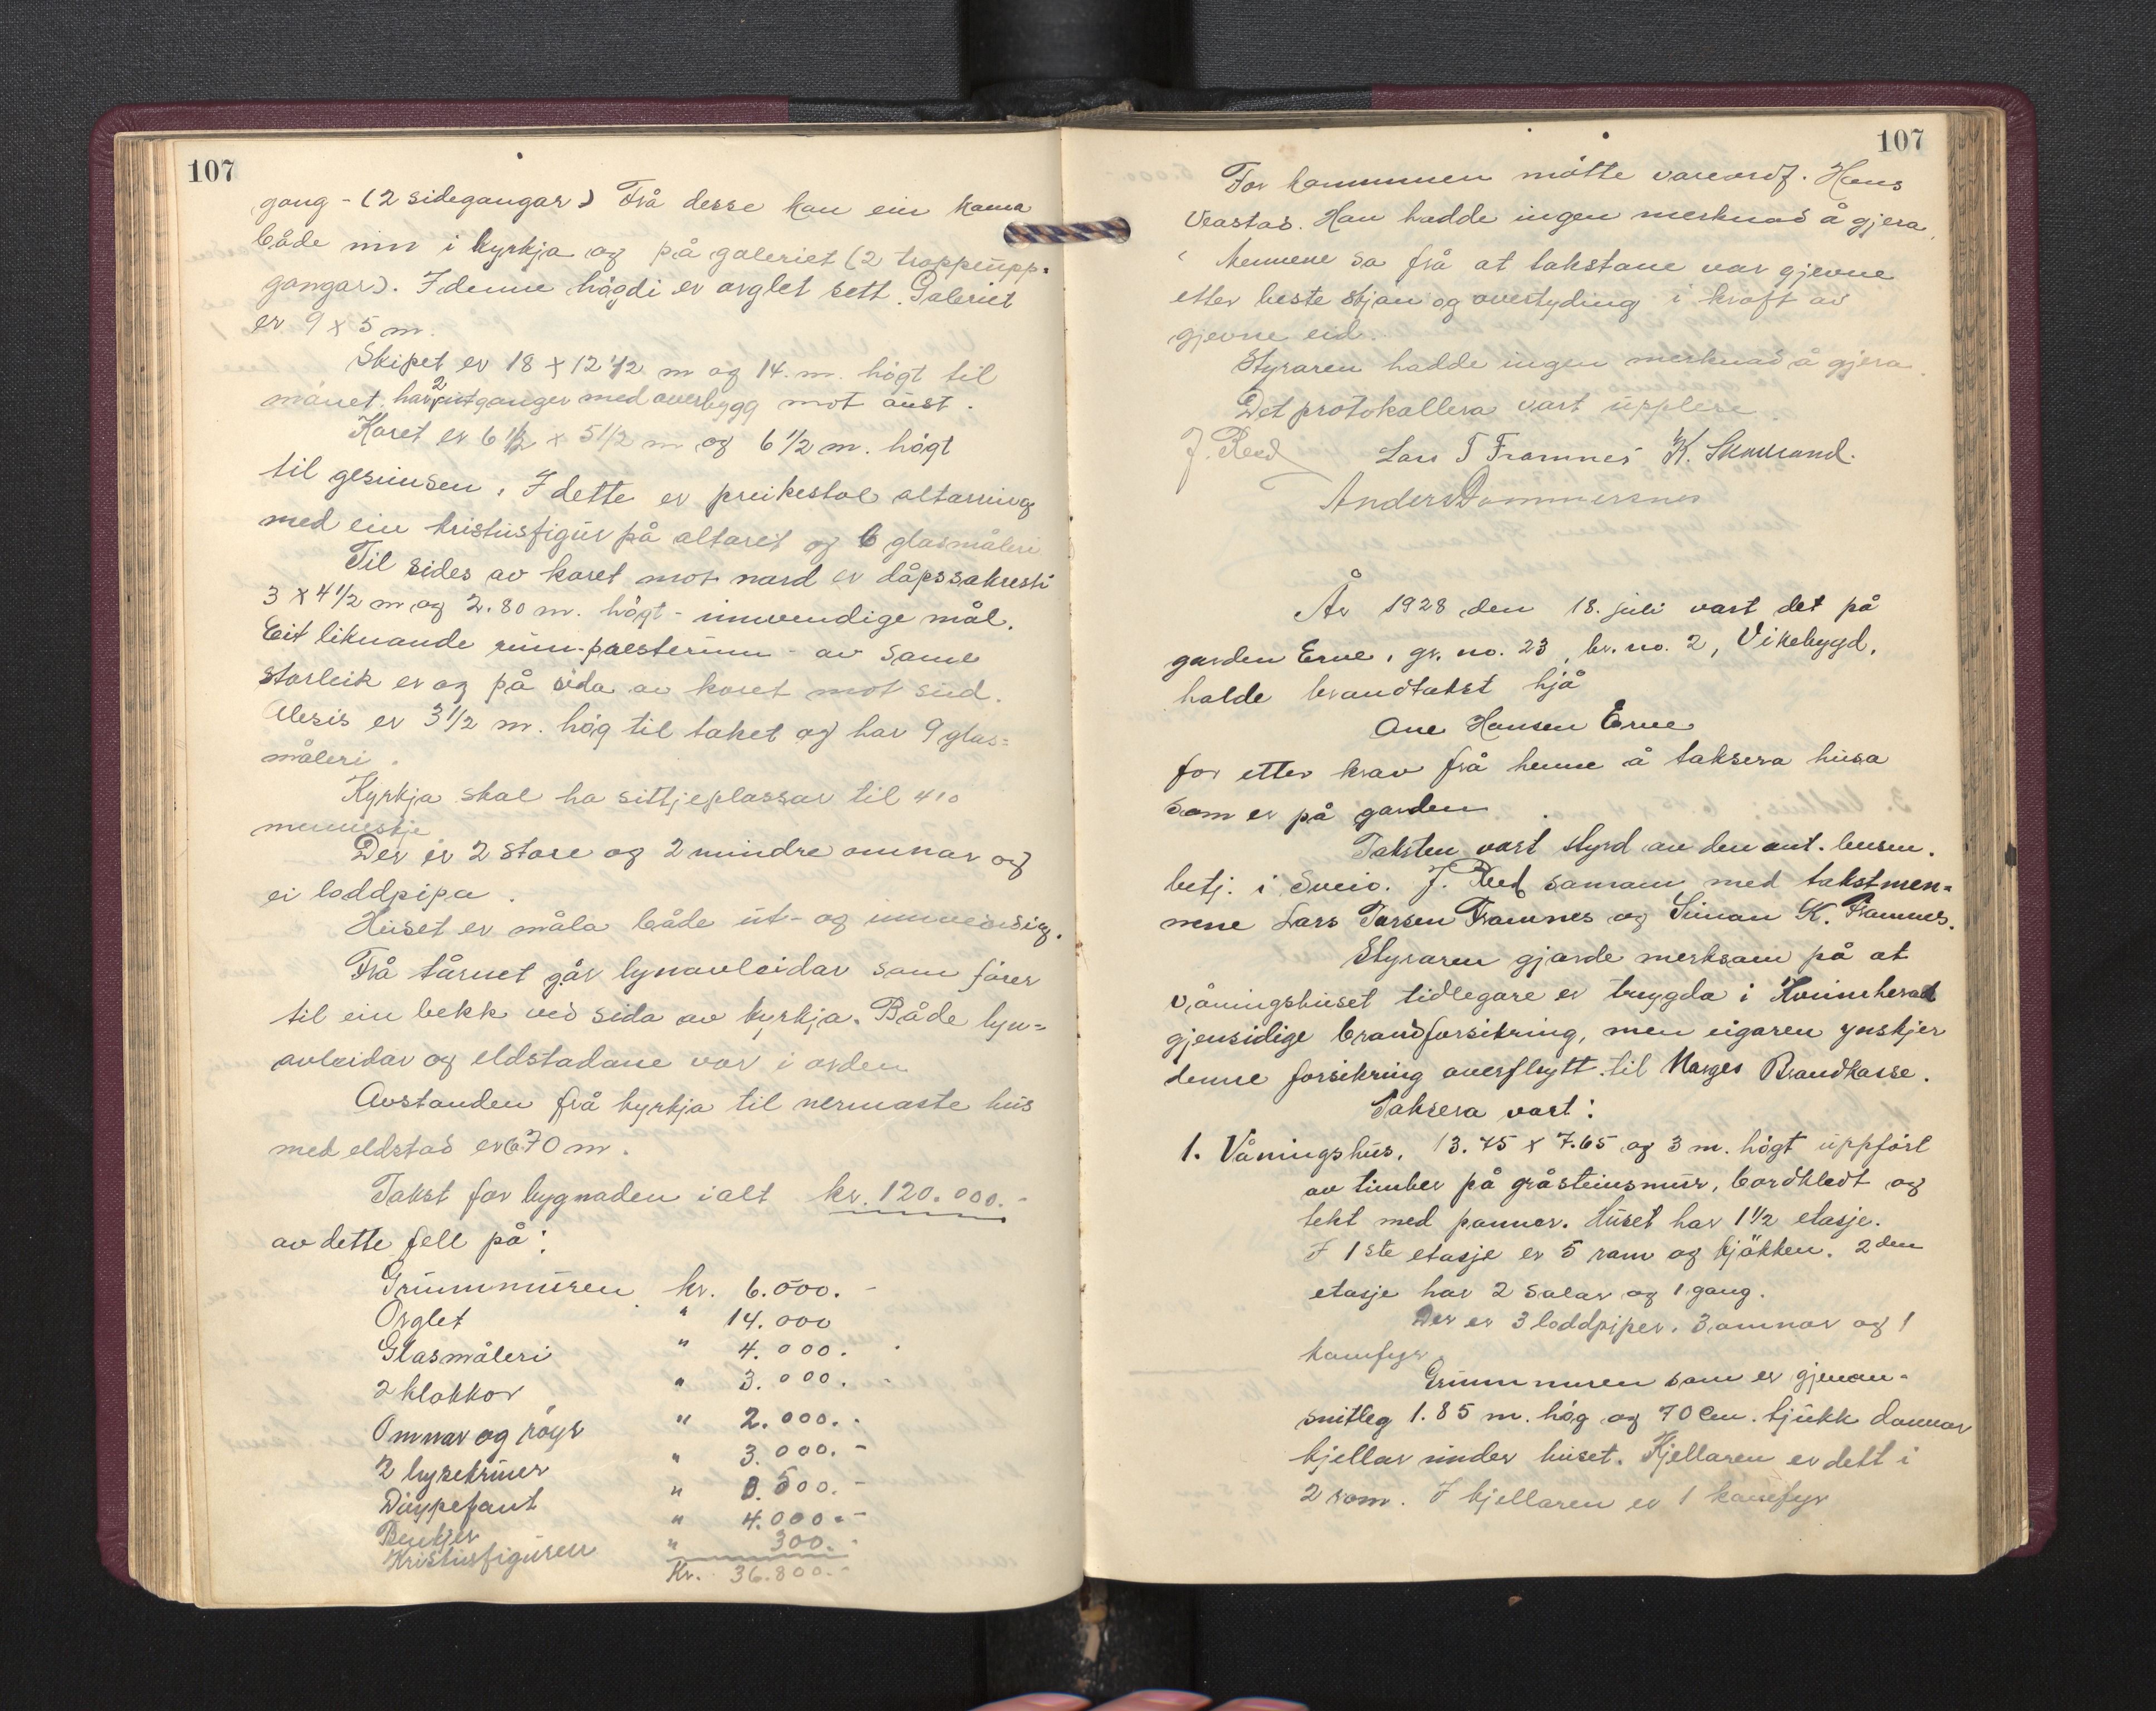 107
gang - (2 sidegangar) Frå desse kan ein koma
både inn i kyrkja og på galeriet (2 troppeupp-
gangar). I denne högdi er orglet sett. Galeriet
er 9 x 5 m.
Skipet er 18 x 12 1/2 m og 14. m. högt til
mönet. har 2 utganger med overbygg mot aust.
Koret er 6 1/2 x 5 1/2 m og 6 1/2 m. högt
til gesimsen. I dette er preikestol altarring
med ein kristusfigur på altaret og 6 glasmåleri
Til sides av koret mot nord er dåpssakresti
3 x 4 1/2 m og 2.80 m. högt - innvendige mål.
Eit liknande rum - presterum - av same
storleik er og på sida av koret mot sud.
er 3 1/2 m. hög til taket og har 9 glas=
måleri.
Kyrkja skal ha sittjeplassar til 410
menneskje
Der er 2 store og 2 mindre omnar og
ei loddpipa.
Huset er måla både ut- og innvendig.
Frå tårnet går lynavleidar som förer
til ein bekk ved sida av kyrkja. Både lyn=
avleidar og eldstadane var i orden
Avstanden frå kyrkja til nermaste hus
med eldstad er 670 m.
Takst for bygnaden ialt kr. 120.000.-
av dette fell på:
Grunnmuren kr. 6.000.-
Orglet " 14.000
Glasmåleri " 4.000.-
2 klokkor " 3.000.-
Omnar og röyr " 2.000.-
2 lysekruner " 3.000.-
Döypefont " 0.500.-
Benkjer " 4.000.-
Kristusfiguren " 300.-
Kr. 36.800.-
107
For kommunen mötte vareordf. Hans
Han hadde ingen merknad å gjera.
Mennene sa frå at takstane var gjevne
etter beste skjön og overtyding i kraft av
gjevne eid.
Styraren hadde ingen merknad å gjera.
Det protokollera vart upplese.
J. Reed Lars T Framnes K.
Anders Dommersnes
År 1928 den 18. juli vart det på
garden Erve, gr. no. 23, br. no. 2, Vikebygd,
halde brandtakst hjå
Ane Hansen Erve
for etter krav frå henne å taksera husa
som er på garden.
Taksten vart styrd av den ant. lensm.
betj. i Sveio. J. Reed saman med takstmen=
nene Lars Tarsen Framnes og Simon K. Framnes.
Styraren gjorde merksam på at
våningshuset tidlegare er trygda i Kvinnherad
gjensidige brandforsikring, men eigaren ynskjer
denne forsikring overflytt til Norges Brandkasse.
Taksera vart:
1. Våningshus, 13.75 x 7.65 og 3 m. högt uppfört
av timber på gråsteinsmur, bordkledt og
tekt med pannor. Huset har 1 1/2 etasje.
I 1ste etasje er 5 rom og kjökken. 2den
etasje har 2 salar og 1 gang.
Der er 3 loddpiper, 3 omnar og 1
komfyr.
Grunnmuren som er gjenom-
snitleg 1.85 m. hög og 70 cm. tjukk dannar
kjellar under huset. Kjellaren er delt i
2 rom. I kjellaren er 1 komfyr